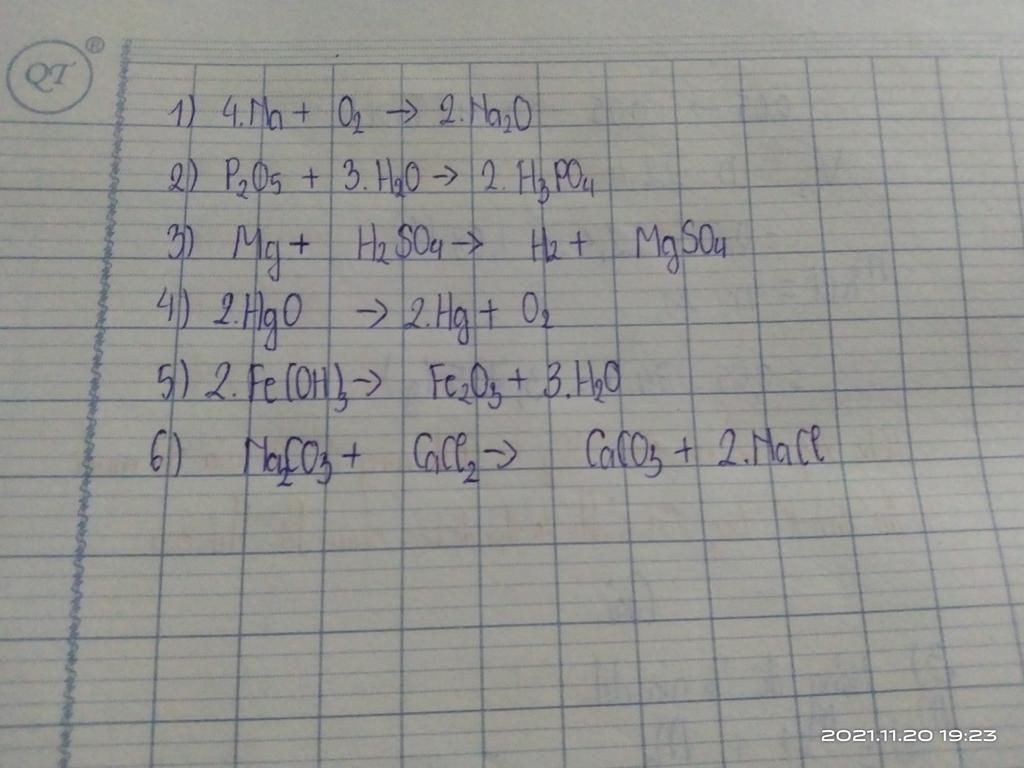 QT
®
1) 4.Na + O₂ → 2.Na₂O
2) P₂O₅ + 3.H₂O → 2.H₃PO₄
3) Mg + H₂SO₄ → H₂ + MgSO₄
4) 2.HgO → 2.Hg + O₂
5) 2.Fe(OH)₃ → Fe₂O₃ + 3.H₂O
6) Na₂CO₃ + CaCl₂ → CaCO₃ + 2.NaCl
2021.11.20 19:23